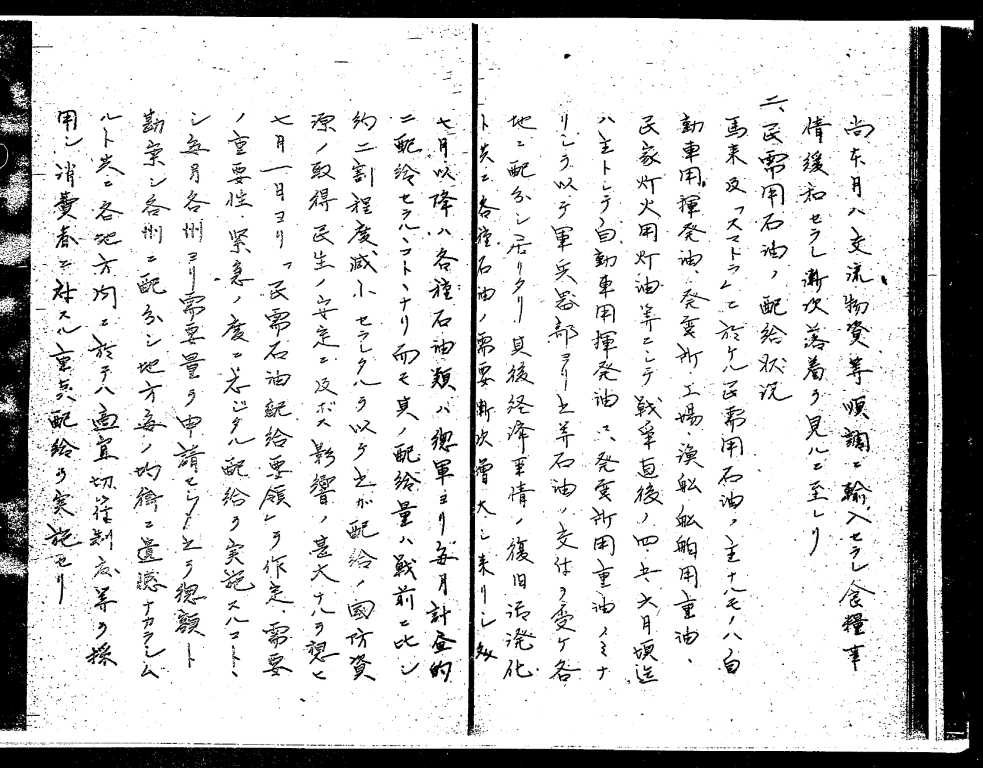 尚本月ハ交流物資等順調ニ輸入セラレ食糧事
情緩和セラレ漸次落着ヲ見ルニ至レリ
二、民需用石油ノ配給状況
馬来及「スマトラ」ニ於ケル民需用石油ノ主ナルモノハ自
動車用揮発油、発電所、工場、漁船船舶用重油、
民家灯火用灯油等ニシテ戦争直後ノ四、五、六月頃迄
ハ主トシテ自動車用揮発油ニ、発電所用重油ノミナ
リシヲ以テ軍兵器部ヨリ之等石油ノ交付ヲ受ケ各
地ニ配分シ居リタリ其後経済事情ノ復旧活溌化
ト共ニ各種石油ノ需要漸次増大シ来リシ処
七月以降ハ各種石油類ハ総軍ヨリ毎月計画的
ニ配給セラルヽコトヽナリ而モ其ノ配給量ハ戦前ニ比シ
約二割程度減小セラレタルヲ以テ之ガ配給ノ国防資
源ノ取得民生ノ安定ニ及ボス影響ノ甚大ナルヲ想ヒ
七月一日ヨリ「民需石油配給要領」ヲ作定需要
ノ重要性、緊急ノ度ニ応ジタル配給ヲ実施スルコトヽ
シ毎月各州ヨリ需要量ヲ申請セシメ之ヲ総額ト
勘案シ各州ニ配分シ地方毎ノ均衡ニ遺憾ナカラシム
ルト共ニ各地方内ニ於テハ適宜切符制度等ヲ採
用シ消費者ニ対スル重点配給ヲ実施セリ